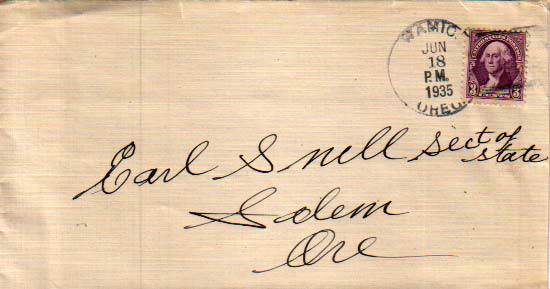 WAMIC
JUN
18
P.M.
1935
OREG.
3 3
Earl Snell Sect of
state
Salem
Ore